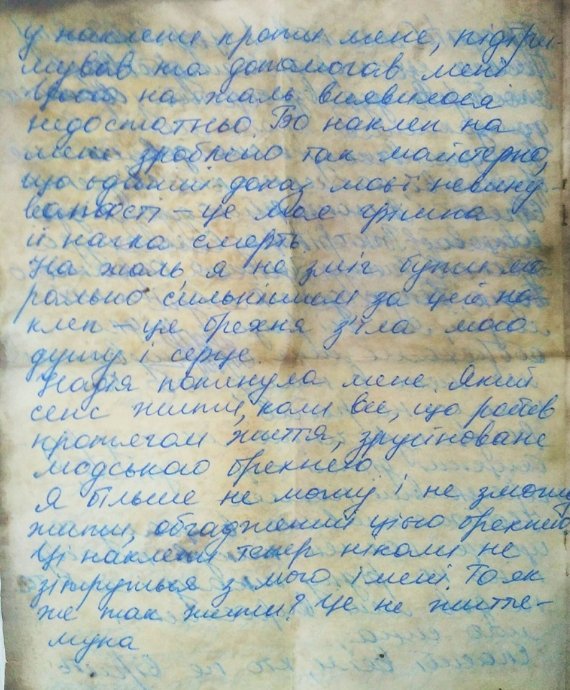 у наклепи проти мене, підтри-
мував та допомагав мені
на жаль виявилося
недостатньо. Бо наклеп на
мене зроблено так майстерно,
що єдиний доказ моєї невину-
ватості – це моя грішна
й нагла смерть.
На жаль я не зміг бути мо-
рально сильнішим за цей на-
клеп – ця брехня з'їла мою
душу і серце.
Надія покинула мене. Який
сенс жити, коли все, що робив
протягом життя, зруйноване
людською брехнею.
Я більше не можу і не зможу
жити, обгаджений цією брехнею
Ці наклепи тепер ніколи не
зітруться з мого імені. То як
же так жити? Це не життя-
мука